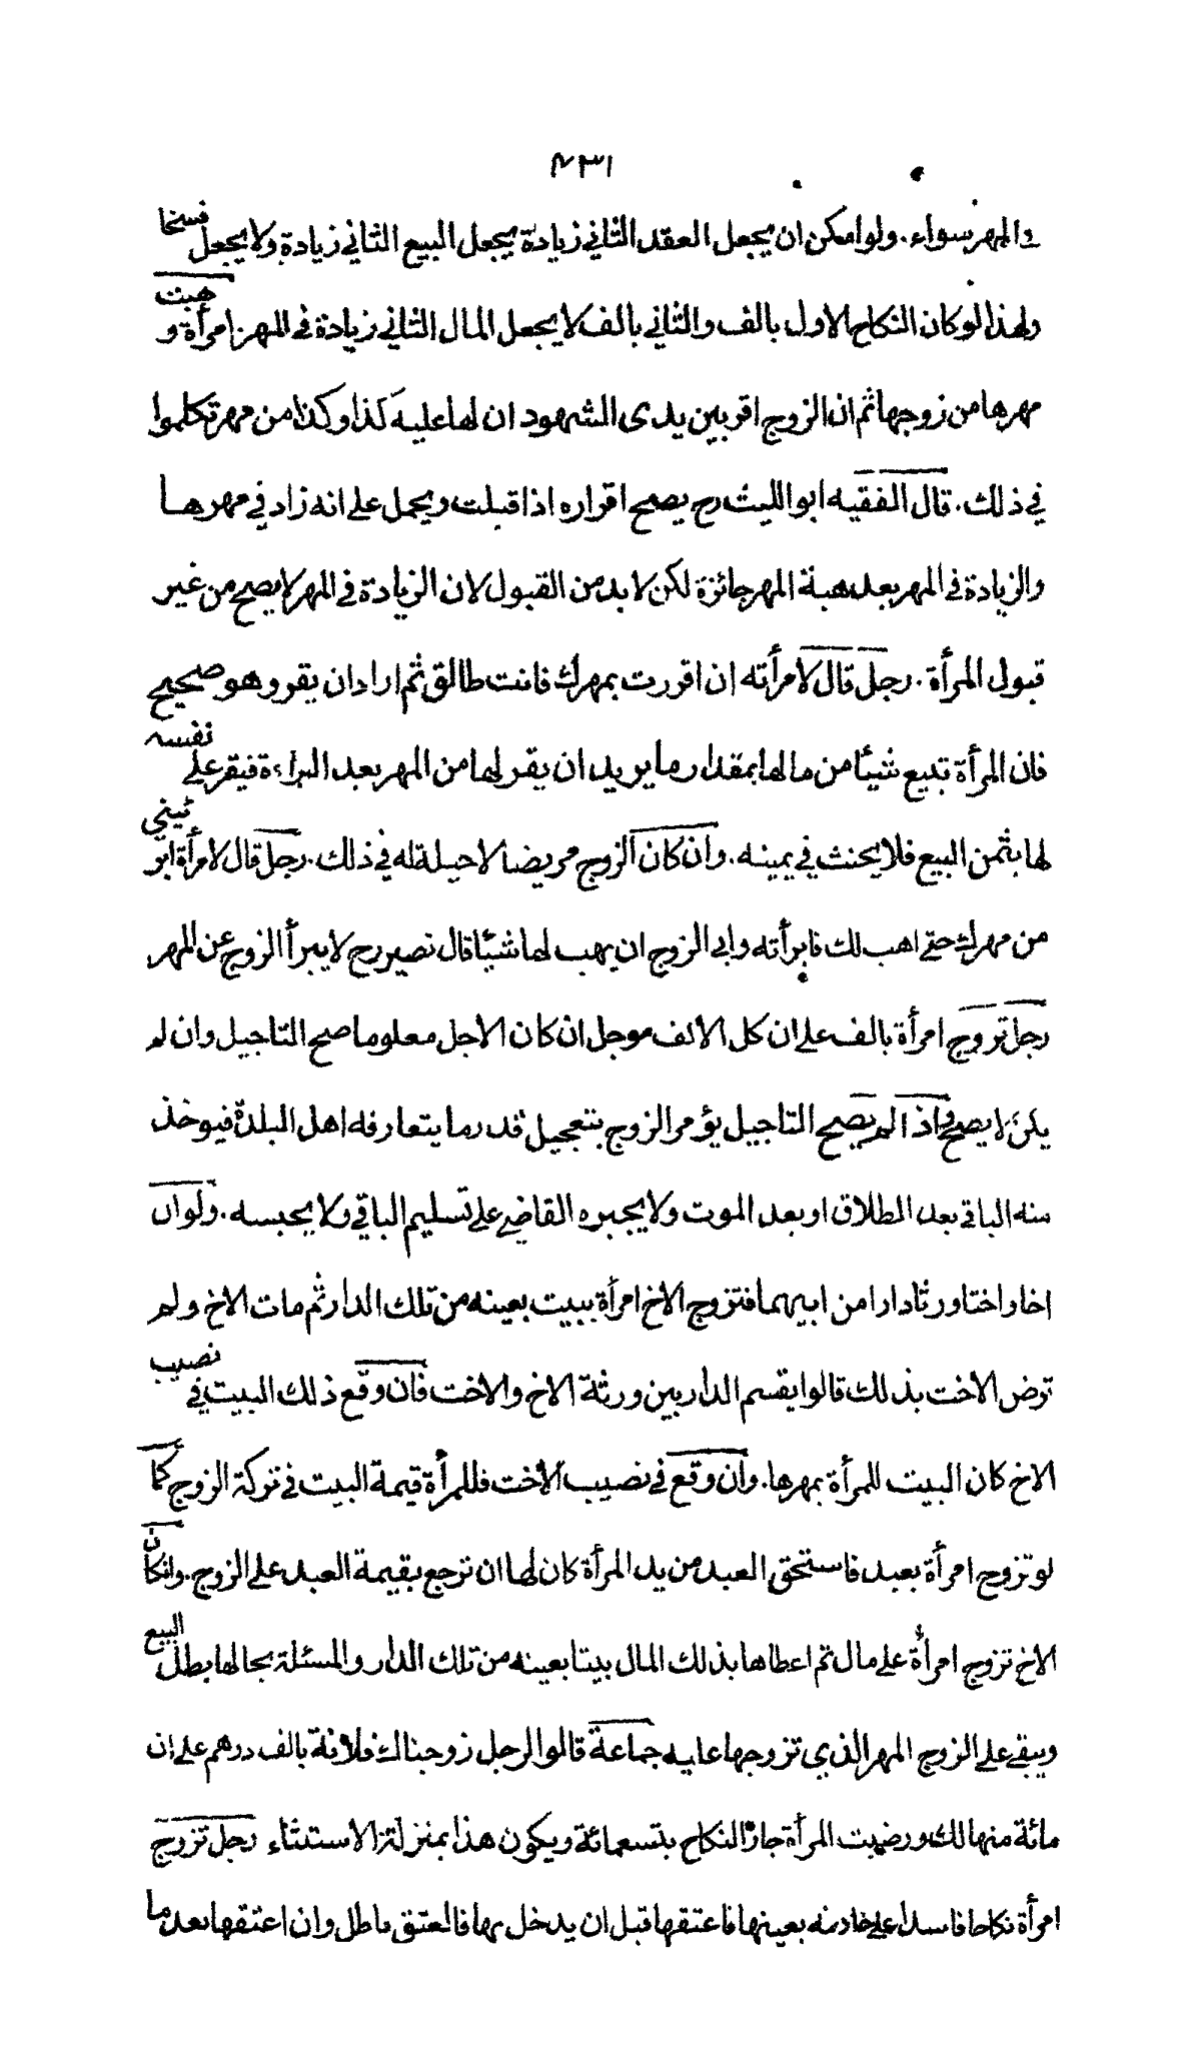 ٤٣١
والمهر سواء. ولو امكن ان يجعل العقد الثاني زيادة يجعل البيع الثاني زيادة ولا يجعل فسخا
ولهذا لو كان النكاح الاول بالف والثاني بالف لا يجعل المال الثاني زيادة في المهر امرأة وهبت
مهرها من زوجها ثم ان الزوج اقر بين يدى الشهود ان لها عليه كذا وكذا من مهر تكلموا
في ذلك. قال الفقيه ابو الليث رح يصح اقراره اذا قبلت ويحمل على انه زاد في مهرها
والزيادة في المهر بعد هبة المهر جائزة لكن لا بد من القبول لان الزيادة في المهر لا يصح من غير
قبول المرأة. رجل قال لامرأته ان اقررت بمهرك فانت طالق ثم اراد ان يقر وهو صحيح
فان المرأة تبيع شيئا من مالها بمقدار ما يريد ان يقر لها من المهر بعد البراءة فيقر على نفسه
لها بثمن البيع فلا يحنث في يمينه. وان كان الزوج مريضا لا حيلة له في ذلك. رجل قال لامرأة ابرئيني
من مهرك حتى اهب لك فابرأته وابى الزوج ان يهب لها شيئا قال نصير رح لا يبرأ الزوج عن المهر
رجل تزوج امرأة بالف على ان كل الالف موجل ان كان الاجل معلوما صح التاجيل وان لم
يكن لا يصح واذا لم يصح التاجيل يؤمر الزوج بتعجيل قدر ما يتعارفه اهل البلدة فيوخذ
منه الباقي بعد الطلاق او بعد الموت ولا يجبره القاضي على تسليم الباقي ولا يحبسه. ولو ان
اخا واختا ورثا دارا من ابيهما فتزوج الاخ امرأة ببيت بعينه من تلك الدار ثم مات الاخ ولم
ترض الاخت بذلك قالوا يقسم الدار بين ورثة الاخ والاخت فان وقع ذلك البيت في نصيب
الاخ كان البيت للمرأة بمهرها. وان وقع في نصيب الاخت فللمرأة قيمة البيت في تركة الزوج كما
لو تزوج امرأة بعبد فاستحق العبد من يد المرأة كان لها ان ترجع بقيمة العبد على الزوج. وان كان
الاخ تزوج امرأة على مال ثم اعطاها بذلك المال بيتا بعينه من تلك الدار والمسئلة بحالها بطل البيع
ويبقى على الزوج المهر الذي تزوجها عليه جماعة قالوا لرجل زوجناك فلانة بالف درهم على ان
مائة منها لك ورضيت المرأة جاز النكاح بتسعمائة ويكون هذا بمنزلة الاستثناء رجل تزوج
امرأة نكاحا فاسدا على خادمه بعينها فاعتقها قبل ان يدخل بها فالعتق باطل وان اعتقها بعد ما